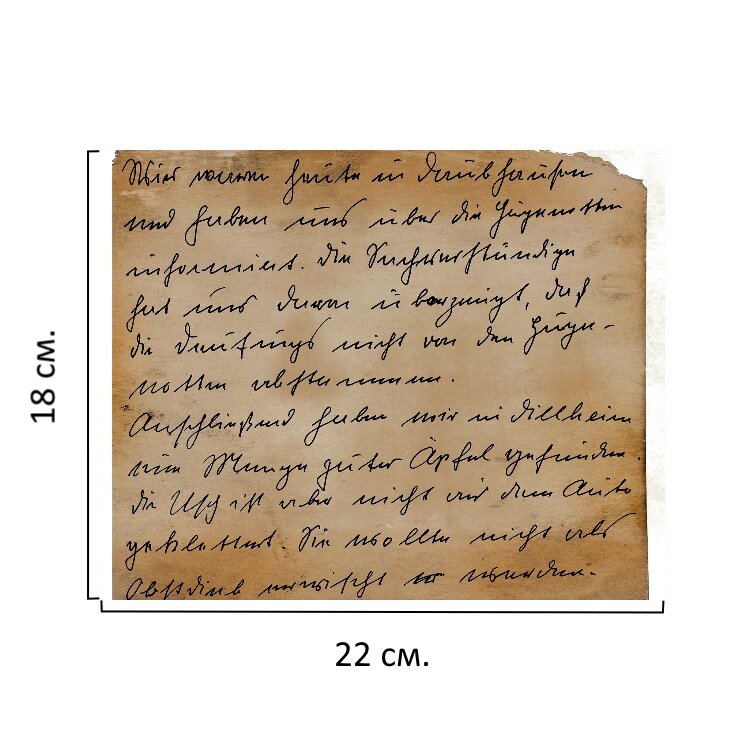 Wir waren heute in Daubhausen
und haben uns über die Hugenotten
informiert. Die Sachverständige
hat uns davon überzeugt, daß
die nicht von den Huge-
notten abstammen.
Anschließend haben wir in Dillheim
eine Menge guter Äpfel gefunden.
Die Usch ist aber nicht aus dem Auto
geklettert. Sie wollte nicht als
Obstdieb erwischt werden.
18 см.
22 см.